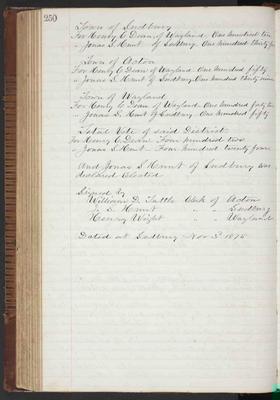 250
Town of Sudbury
For Henry C Dean of Wayland One hundred ten
" Jonas S. Hunt of Sudbury. One hundred Thirty
Town of Acton
For Henry C Dean of Wayland One hundred fifty
" Jonas S. Hunt of Sudbury. One hundred Thirty nine
Town of Wayland
For Henry C Dean of Wayland. One hundred forty
" Jonas S. Hunt of Sudbury One hundred fifty
Total Vote of said District
For Henry C. Dean Four hundred two
Jonas S. Hunt Four hundred twenty four
And Jonas S Hunt of Sudbury was
declared Elected
Signed by
William D. Tuttle Clerk of Acton
J. S. Hunt " " Sudbury
Henry Wight " " Wayland
Dated at Sudbury Nov 3d 1875